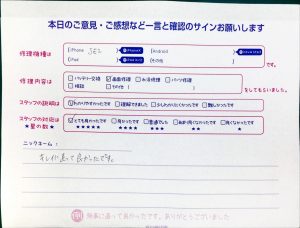 本日のご意見・ご感想など一言と確認のサインお願いします
修理機種は
iPhone SE2
Android
iPad
その他
です。
修理内容は
バッテリー交換 画面修理 水没修理 パーツ修理
確認 その他
をしてもらいました。
スタッフの説明は
わかりやすかったです 理解できました 少しわかりにくかったです 難しかったです
スタッフの対応は
★星の数★
とても良かったです 良かったです 普通でした あまり良くなかったです 良くなかったです
★★★★★ ★★★★ ★★★ ★★ ★
ニックネーム:
キレイに直って良かったです。
無事に直って良かったです。ありがとうございました